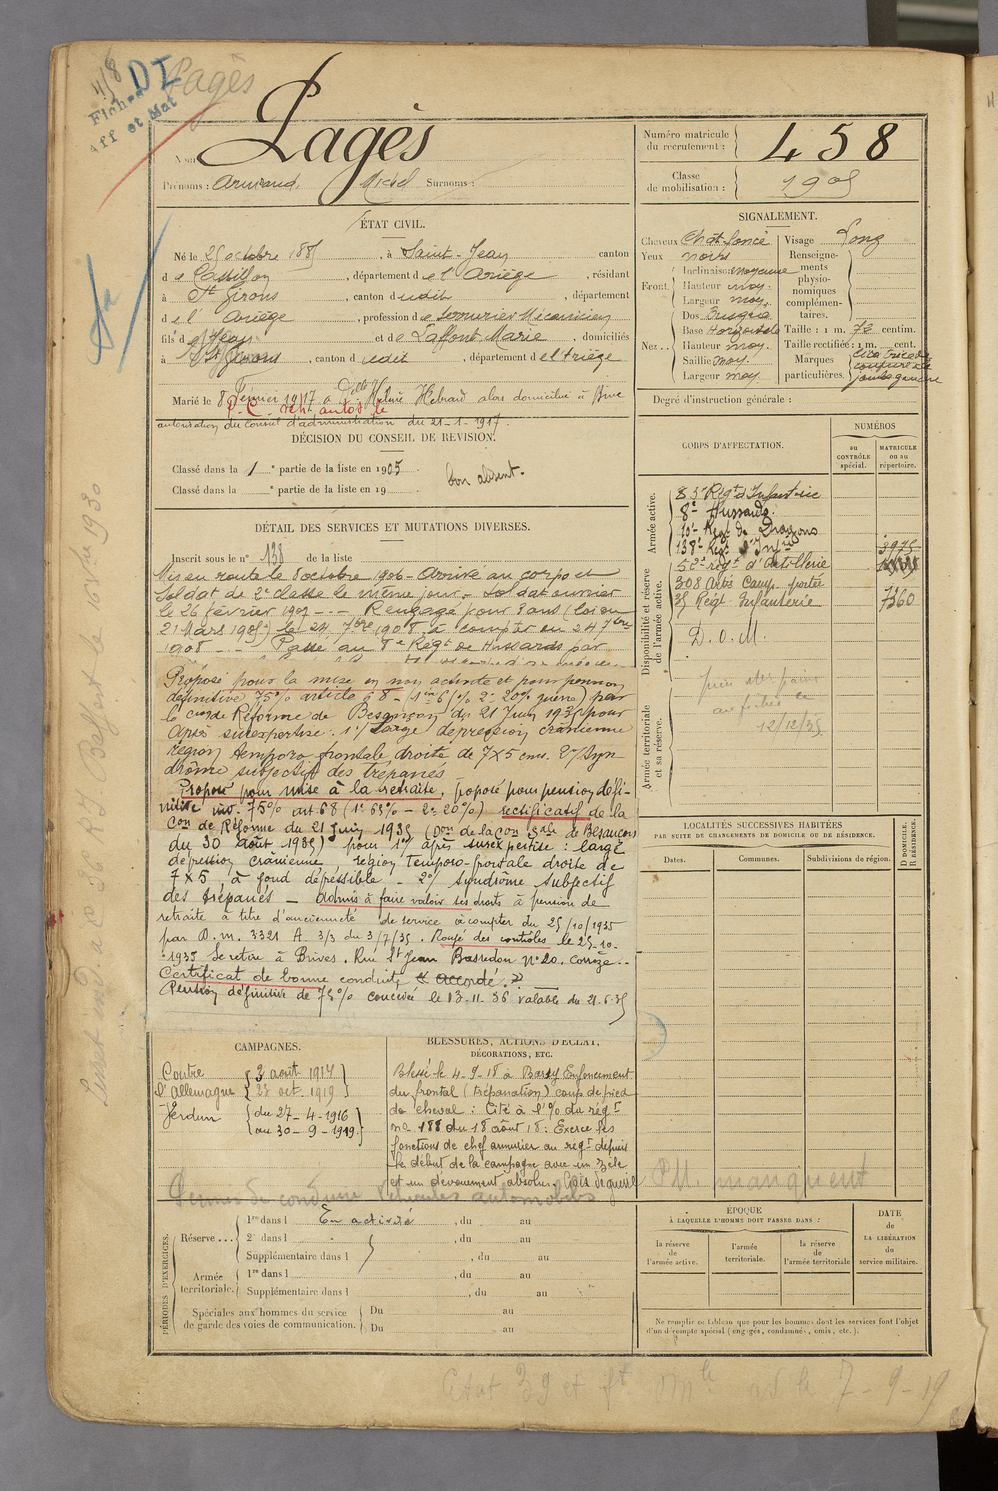 4/8 DI Pagès
Fiches
Aff et Mat
Nom Pagès
Prénoms : Armand, Michel Surnoms :
Numéro matricule du recrutement : 458
Classe de mobilisation : 1905
ÉTAT CIVIL.
Né le 25 octobre 1885, à Saint-Jean canton
de Castillon, département de l'Ariège, résidant
à St Girons, canton dudit, département
de l'Ariège, profession de Serrurier Mécanicien
fils de Jean et de Laffont Marie, domiciliés
à St Girons, canton dudit, département de l'Ariège
Marié le 8 Février 1917 à Delle Hélène Hebrard alors domiciliée à Brive
autorisation du conseil d'administration du 21-1-1917.
SIGNALEMENT.
Cheveux Chat foncé
Yeux noirs
Front. Inclinaison moyenne
Hauteur moy.
Largeur moy.
Nez Dos Busqué
Base Horizontale
Hauteur moy.
Saillie moy.
Largeur moy.
Visage long
Renseignements physionomiques complémentaires.
Taille : 1 m. 72 centim.
Taille rectifiée : 1 m. cent.
Marques particulières. Cicatrice de coupure à la jambe gauche
Degré d'instruction générale :
DÉCISION DU CONSEIL DE REVISION.
Classé dans la 1e partie de la liste en 1905.
Classé dans la e partie de la liste en 19
bon absent.
DÉTAIL DES SERVICES ET MUTATIONS DIVERSES.
Inscrit sous le n° 138 de la liste
Mis en route le 8 octobre 1906 - Arrivé au corps et
Soldat de 2e classe le même jour. Soldat ouvrier
le 26 février 1907 - Rengagé pour 3 ans (loi du
21 Mars 1905) le 24 7bre 1908 à compter du 24 7bre
1908 - Passé au 8e Régt de Hussards par
Proposé pour la mise en non activité et pour pension
définitive 75% article 68 - (1° 65% 2° 20% guerre) par
la Con de Réforme de Besançon du 21 Juin 1935 pour
après surexpertise : 1°/ Large dépression crânienne
région temporo frontale droite de 7x5 cms. 2°/ Syn-
drôme subjectif des trépanés
Proposé pour mise à la retraite, proposé pour pension défi-
nitive inv. 75% art 68 (1° 65% - 2° 20%) rectificatif de la
Con de Réforme du 21 Juin 1935 (Don de la Con Sale de Besançon
du 30 août 1935) pour 1°/ après surexpertise : large
dépression crânienne région temporo-frontale droite de
7x5 à fond dépressible - 2°/ syndrôme subjectif
des trépanés - Admis à faire valoir ses droits à pension de
retraite à titre d'ancienneté de service à compter du 25/10/1935
par D.m. 3321 A. 3/3 du 3/7/35. Rayé des contrôles le 25-10-
1935 Se retire à Brives. Rue St Jean Basredon N° 20. Corrèze.
Certificat de bonne conduite « accordé. »
Pension définitive de 75% concédée le 13-11-36 valable du 21-6-35
CORPS D'AFFECTATION.
NUMÉROS
au CONTRÔLE spécial.
MATRICULE ou au répertoire.
Armée active.
83e Régt d'Infanterie
8e Hussards.
10e Regt de Dragons
138e Regt d'Infrie 3975
Disponibilité et réserve de l'armée active.
52e régt d'Artillerie
308 Artie Camp. portée
35 Régt Infanterie 7360
D.O.M.
12/12/35
Armée territoriale et sa réserve.
LOCALITÉS SUCCESSIVES HABITÉES
PAR SUITE DE CHANGEMENTS DE DOMICILE OU DE RÉSIDENCE.
Dates. Communes. Subdivisions de région. D DOMICILE. R RÉSIDENCE.
CAMPAGNES.
Contre l'Allemagne 3 août 1914
23 oct. 1919
Verdun du 27-4-1916
au 30-9-1919.
BLESSURES, ACTIONS D'ÉCLAT, DÉCORATIONS, ETC.
Blessé le 4-9-18 à Barzy Enfoncement
du frontal (trépanation) coup de pied
de cheval : Cité à l'% du régt
n° 188 du 18 août 18 : Exerce les
fonctions de chef armurier au regt depuis
le début de la campagne avec un zèle
et un dévouement absolus. Croix de guerre
Permis de conduire Véhicules automobiles
P.M. manquent
PÉRIODES D'EXERCICES.
Réserve ... 1re dans l En activité, du au
2e dans l, du au
Supplémentaire dans l, du au
Armée territoriale. 1re dans l, du au
Supplémentaire dans l, du au
Spéciales aux hommes du service de garde des voies de communication. Du au
Du au
ÉPOQUE
À LAQUELLE L'HOMME DOIT PASSER DANS :
la réserve de l'armée active.
l'armée territoriale.
la réserve de l'armée territoriale
DATE de LA LIBÉRATION du service militaire.
Ne remplir ce tableau que pour les hommes dont les services font l'objet
d'un décompte spécial (engagés, condamnés, omis, etc.).
Etat 39 et 7-9-19